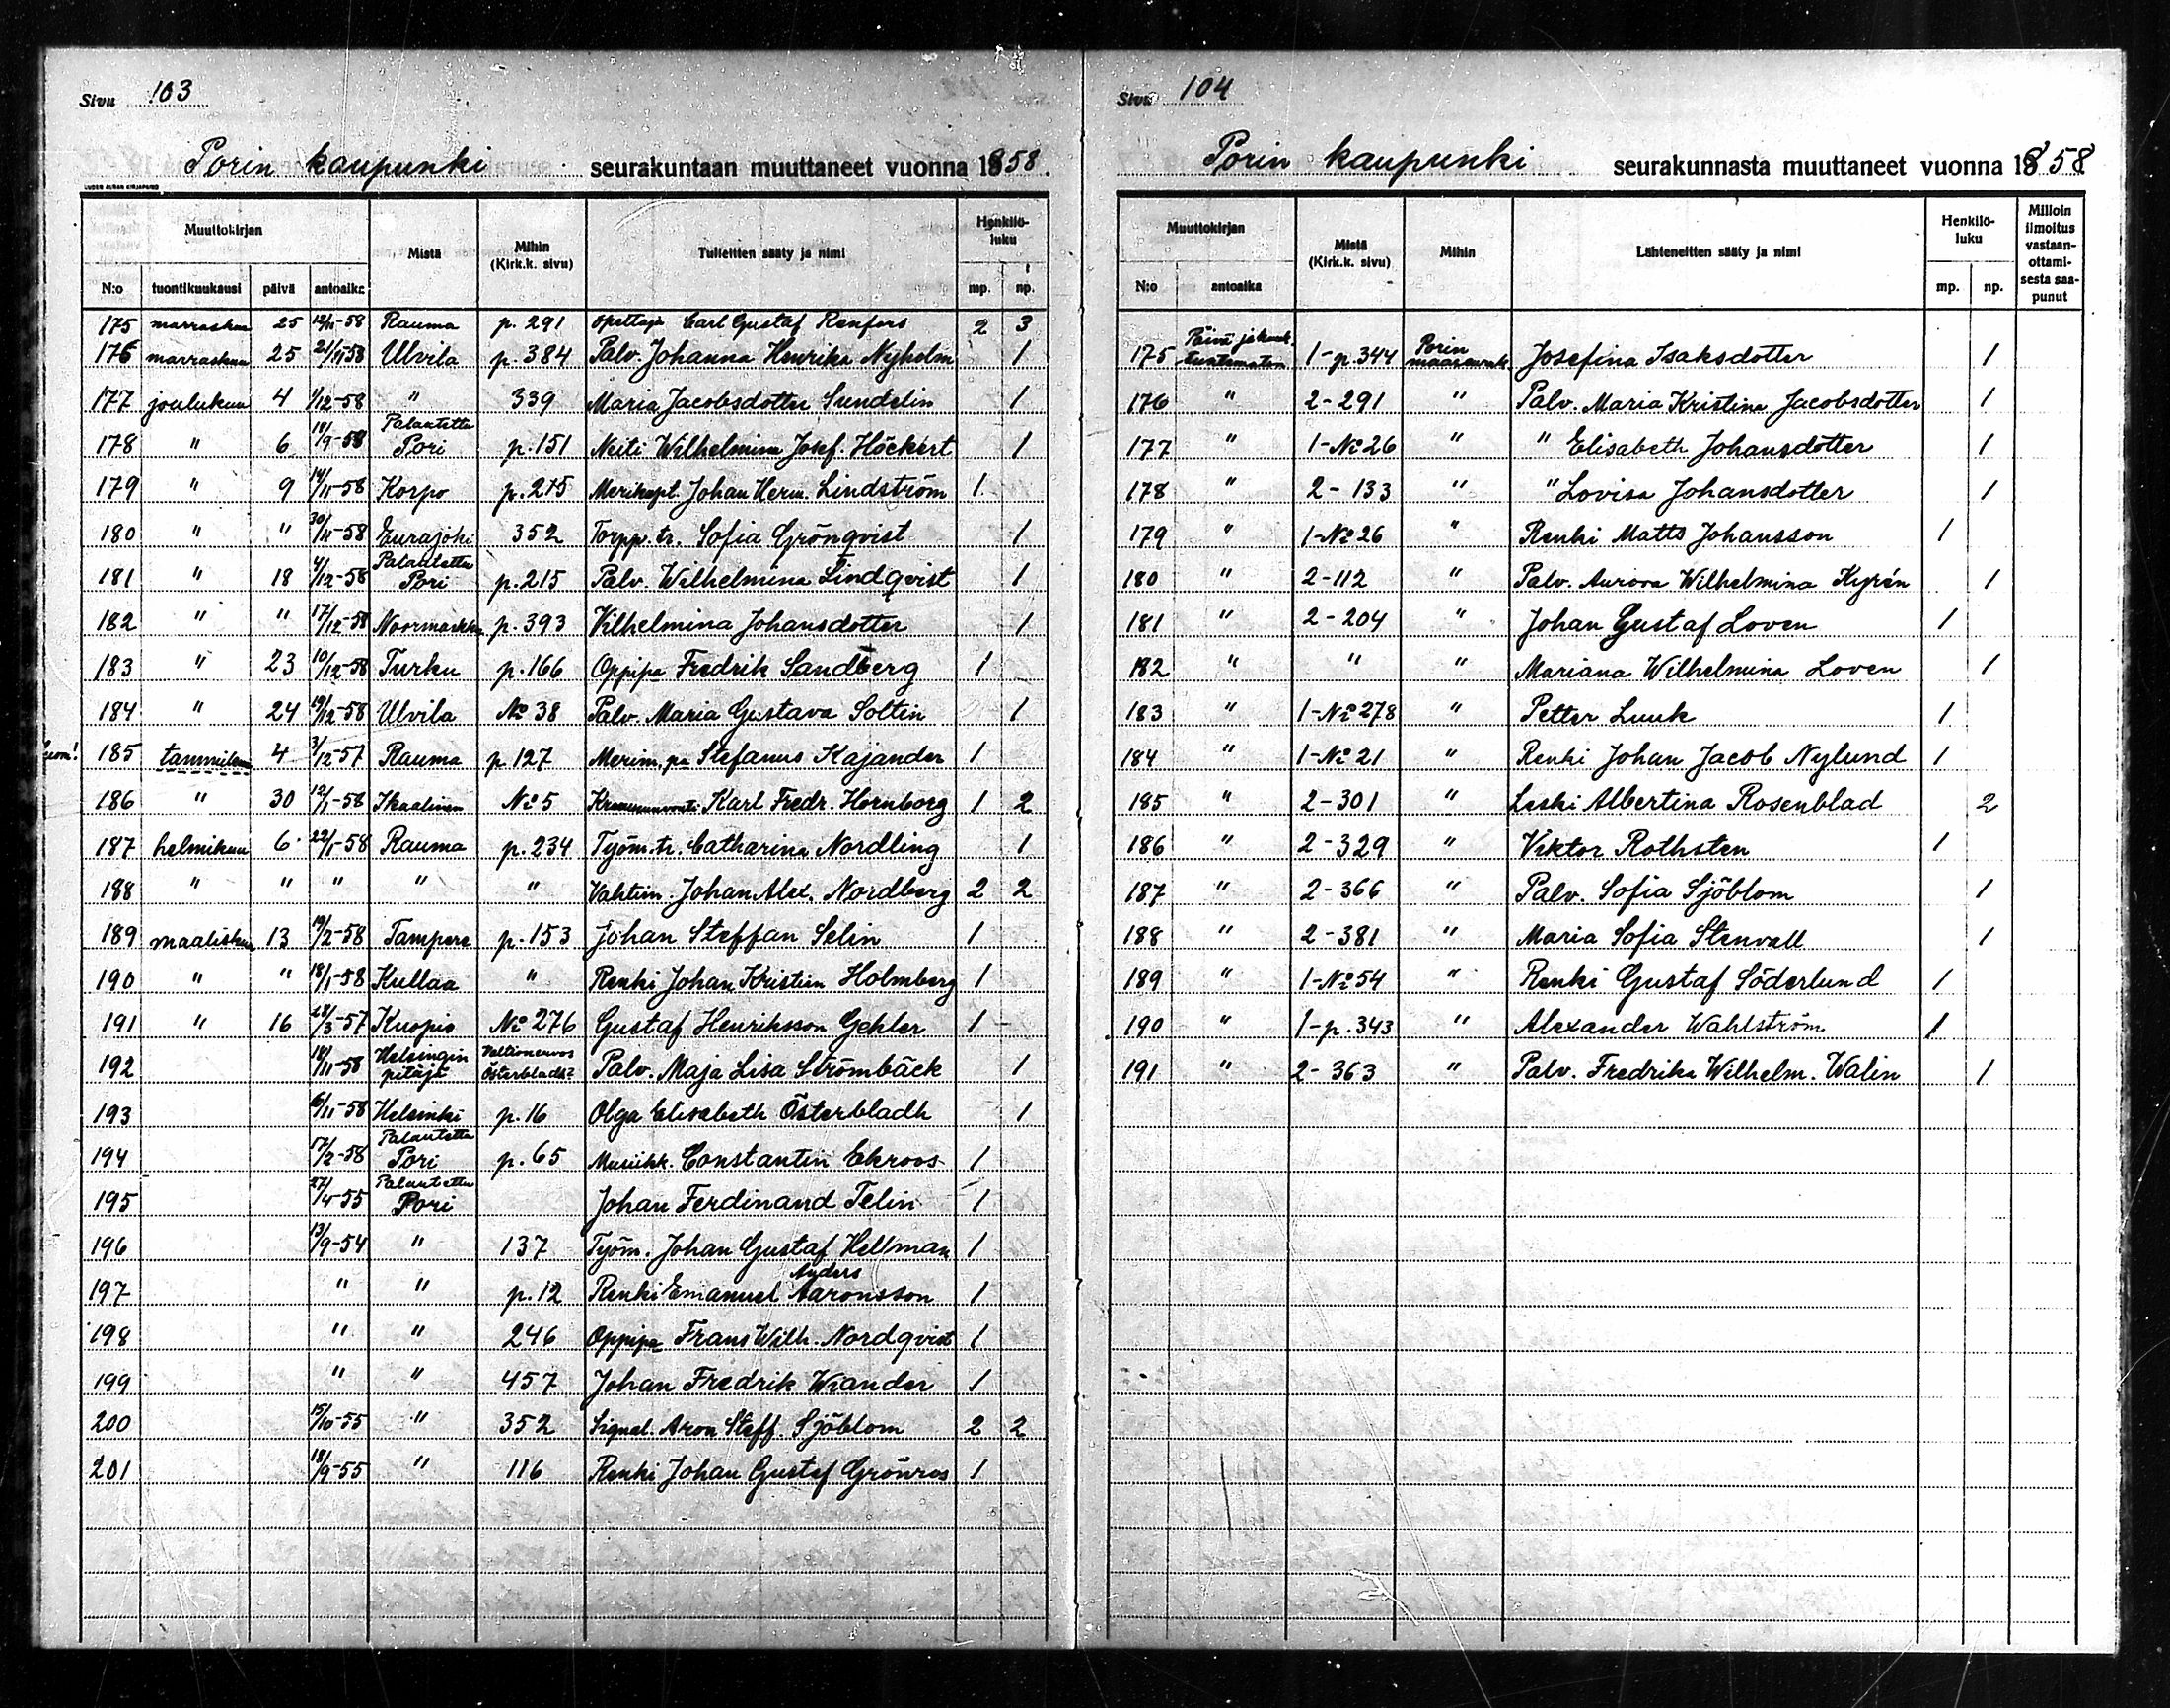 Sivu 103
Porin kaupunki seurakuntaan muuttaneet vuonna 1858.
Muuttokirjan Mistä Mihin (Kirk.k. sivu) Tulleitten sääty ja nimi Henkilö-luku
N:o tuontikuukausi päivä antoaika mp. np.
175 marraskuu 25 12/11-58 Rauma p. 291 Opettaja Carl Gustaf Renfors 2 3
176 marraskuu 25 21/11-58 Ulvila p. 384 Palv. Johanna Henrika Nyholm 1
177 joulukuu 4 1/12-58 " 339 Maria Jacobsdotter Sundelin 1
178 " 6 18/9-58 Palautettu Pori p. 151 Neiti Wilhelmina Josef. Höckert 1
179 " 9 14/11-58 Korpo p. 215 Merikapt. Johan Herm. Lindström 1
180 " " 30/11-58 Eurajoki 352 Torpp. tr. Sofia Grönqvist 1
181 " 18 4/12-58 Palautettu Pori p. 215 Palv. Wilhelmina Lindqvist 1
182 " " 17/12-58 Noormarkku p. 393 Vilhelmina Johansdotter 1
183 " 23 10/12-58 Turku p. 166 Oppipa Fredrik Sandberg 1
184 " 24 19/12-58 Ulvila No 38 Palv. Maria Gustava Soltin 1
185 tammikuu 4 3/12-57 Rauma p 127 Merim. pa Stefanus Kajander 1
186 " 30 12/1-58 Ikaalinen No 5 Kruununvouti Karl Fredr. Hornborg 1 2
187 helmikuu 6 22/1-58 Rauma p. 234 Työm. tr. Catharina Nordling 1
188 " " " " " Vahtim. Johan Alex. Nordberg 2 2
189 maaliskuu 13 19/2-58 Tampere p. 153 Johan Steffan Selin 1
190 " " 18/1-58 Kullaa " Renki Johan Kristian Holmberg 1
191 " 16 28/3-57 Kuopio No 276 Gustaf Henriksson Gehler 1
192 18/11-58 Helsingin pitäjä Österblads? Palv. Maja Lisa Strömbäck 1
193 6/11-58 Helsinki p. 16 Olga Elisabeth Österbladh 1
194 17/2-58 Palautettu Pori p. 65 Musiikk. Constantin Ekroos 1
195 27/4-55 Palautettu Pori Johan Ferdinand Telin 1
196 13/9-54 " 137 Työm. Johan Gustaf Hellman 1
197 " " p. 12 Renki Emanuel Anders Aaronsson 1
198 " " 246 Oppipa Frans Wilh. Nordqvist 1
199 " " 457 Johan Fredrik Wiander 1
200 15/10-55 " 352 Signal. Aron Staff. Sjöblom 2 2
201 18/9-55 " 116 Renki Johan Gustaf Grönros 1
Sivu 104
Porin kaupunki seurakunnasta muuttaneet vuonna 1858
Muuttokirjan Mistä (Kirk.k. sivu) Mihin Lähteneitten sääty ja nimi Henkilö-luku Milloin ilmoitus vastaan-ottami-sesta saa-punut
N:o antoaika mp. np.
175 Päivä ja kuuk. tuntematon 1-p. 344 Porin maaseurak. Josefina Isaksdotter 1
176 " 2-291 " Palv. Maria Kristina Jacobsdotter 1
177 " 1-No 26 " " Elisabeth Johansdotter 1
178 " 2-133 " " Lovisa Johansdotter 1
179 " 1-No 26 " Renki Matts Johansson 1
180 " 2-112 " Palv. Aurora Wilhelmina Kyrén 1
181 " 2-204 " Johan Gustaf Loven 1
182 " " " Mariana Wilhelmina Loven 1
183 " 1-No 278 " Petter Luuk 1
184 " 1-No 21 " Renki Johan Jacob Nylund 1
185 " 2-301 " Leski Albertina Rosenblad 2
186 " 2-329 " Viktor Rothsten 1
187 " 2-366 " Palv. Sofia Sjöblom 1
188 " 2-381 " Maria Sofia Stenvall 1
189 " 1-No 54 " Renki Gustaf Söderlund 1
190 " 1-p. 343 " Alexander Wahlström 1
191 " 2-363 " Palv. Fredrika Wilhelm. Walin 1